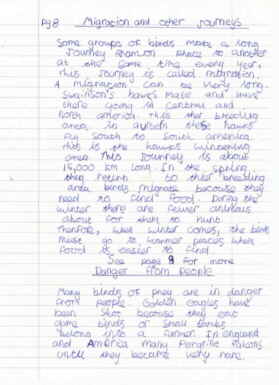 Pg 8 Migration and other journeys
Some groups of birds make a long
Journey from one place to another
at the same time every year.
This Journey is called migration.
A migration can be very long.
Swainson's hawks mate and have
there young in Central and
North america this their breeding
area in autumn these hawks
fly south to South america.
this is the hawks wintering
area This Journey is about
15,000 km long. In the spring
they return to their breeding
area birds migrate because they
need to find food. During the
winter there are fewer animals
about for them to hunt.
therefore, when winter comes, the birds
must go to warmer places where
food is easier to find
See page 9 for more
Danger from people
Many birds of prey are in danger
from people. Golden eagles have
been shot because they eat
game birds or small lambs
belong into a farmer. In england
and America many Peregrine falcons
until they became very rare.